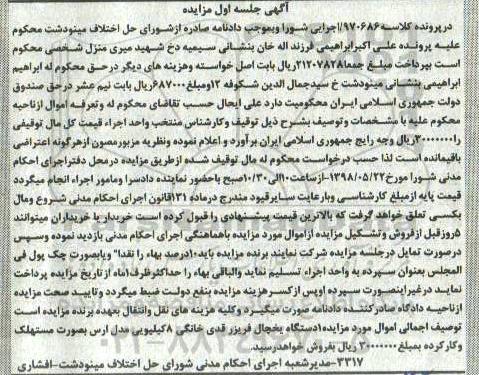 آگهی جلسه اول مزایده
درپرونده کلاسه ۹۷۰۶۸۶/اجرایی شورا وبموجب دادنامه صادره ازشورای حل اختلاف مینودشت محکوم
علیه پرونده علی اکبرابراهیمی فرزند اله خان بنشانی سیمیه دخ شهید میری منزل شخصی محکوم
است بپرداخت مبلغ جمعا۲۱۲۰۷۸۲۸ریال بابت اصل خواسته وهزینه های دیگر درحق محکوم له ابراهیم
ابراهیمی بنشانی مینودشت خ سیدجمال الدین شکوفه ۱۲ومبلغ۶۸۷۰۰۰ریال بابت نیم عشر درحق صندوق
دولت جمهوری اسلامی ایران محکومیت دارد علی ایحال حسب تقاضای محکوم له وتعرفه اموال ازناحیه
محکوم علیه با مشخصات وتوصیف بشرح ذیل توقیف وکارشناس منتخب واحد اجراء قیمت کل مال توقیفی
را۳۰۰۰۰۰۰ریال وجه رایج جمهوری اسلامی ایران برآورد و اعلام نموده ونظریه مزبورمصون ازهرگونه اعتراضی
باقیمانده است لذا حسب درخواست محکوم له مال توقیف شده ازطریق مزایده درمحل دفتراجرای احکام
مدنی شورا مورخ۱۳۹۸/۰۵/۲۲-ازساعت۱۰الی۱۰/۳۰صبح باحضور نماینده دادسرا ومامور اجراء انجام میگردد
قیمت پایه ازمبلغ کارشناسی وبارعایت سایرقیود مندرج درماده ۱۳۱قانون اجرای احکام مدنی شروع ومال
بکسی تعلق خواهد گرفت که بالاترین قیمت پیشنهادی را قبول کرده است خریدار یا خریداران میتوانند
۵روزقبل ازفروش وتشکیل مزایده ازاموال مورد مزایده باهماهنگی اجرای احکام مدنی بازدید نموده وسپس
درصورت تمایل درجلسه مزایده شرکت نمایند برنده مزایده باید۱۰درصد بهاء را نقدا" ویابصورت چک پول فی
المجلس بعنوان سپرده به واحد اجراء تسلیم نماید والباقی بهاء را حداکثرظرف۱ماه ازتاریخ مزایده پرداخت
نماید درغیراینصورت سپرده اوپس ازکسرهزینه مزایده بنفع دولت ضبط میگردد وتایید صحت مزایده
ازناحیه دادگاه صادرکننده دادنامه صورت میگیرد وکلیه هزینه های نقل وانتقال بعهده برنده مزایده است
توصیف اجمالی اموال مورد مزایده۱دستگاه یخچال فریزر قدی خانگی ۸کیلویی مدل ارس بصورت مستهلک
وکارکرده بمبلغ۳۰۰۰۰۰۰ ریال بفروش خواهدرسید.
۳۳۱۷-مدیرشعبه اجرای احکام مدنی شورای حل اختلاف مینودشت-افشاری